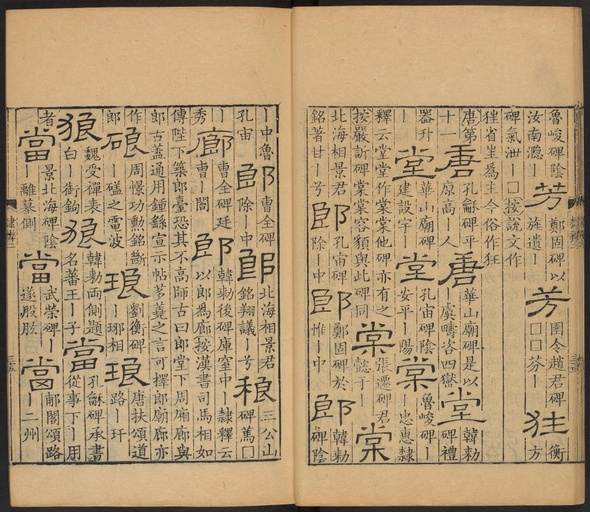 魯峻碑陰汝南灊｜芳鄭固碑以旌遺｜芳圉令趙君碑□□芬｜狂衡方
碑氣泄｜□按說文作狴省坣爲主今俗作狂
唐第十一唐孔龢碑平原高｜人唐華山廟碑是以｜虞疇咨四嶽堂韓勑碑禮
器升｜堂華山廟碑建設宇｜堂孔宙碑陰安平｜陽棠魯峻碑｜忠惠隸
釋云堂堂作棠棠他碑亦有之按嚴訢碑棠棠容貌與此碑同棠張遷碑君懿于｜棠
北海相景君銘著甘｜兮郎孔宙碑除｜中郎鄭固碑於惟｜中郎韓勑碑陰
｜中魯孔宙郎曹全碑除｜中郎北海相景君銘翔議｜兮稂三公山碑蔫□
秀廊曹全碑廷曹｜閤郎韓勑後碑庫室中｜隸釋云以郎爲廊按漢書司馬相如
傳陛下築郎臺恐其不高師古曰郎堂下周廂廊與郎古蓋通用鍾繇宣示帖芻蕘之言可擇郎廟廊亦
作郎硠周憬功勳銘斷｜磕之電波琅劉衡碑｜邪相琅唐扶頌道路｜玕
狼魏受禪表白｜銜鉤狼韓勑兩側題名蕃王｜子當孔龢碑承書從事下｜用
者當景北海碑陰｜離墓側當武榮碑｜遂股肱當郙閣頌路｜二州